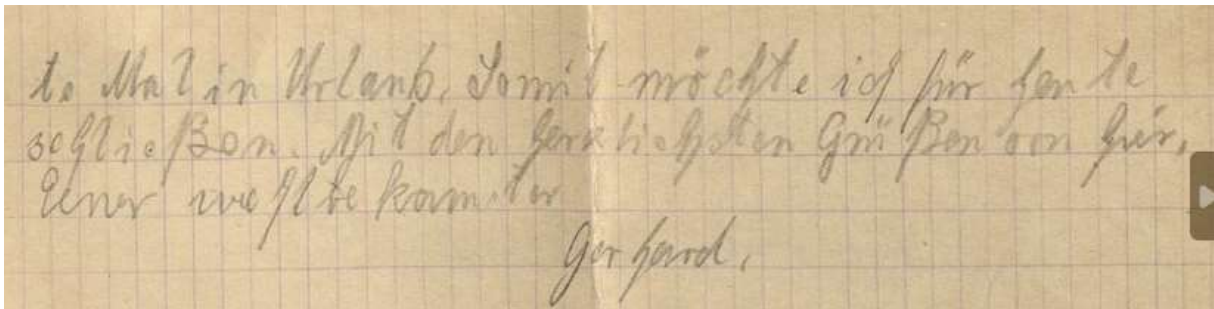 te Mal in Urlaub. Somit möchte ich für heute
schließen. Mit den herzlichsten Grüßen von hier,
Euer wohlbekannter
Gerhard.